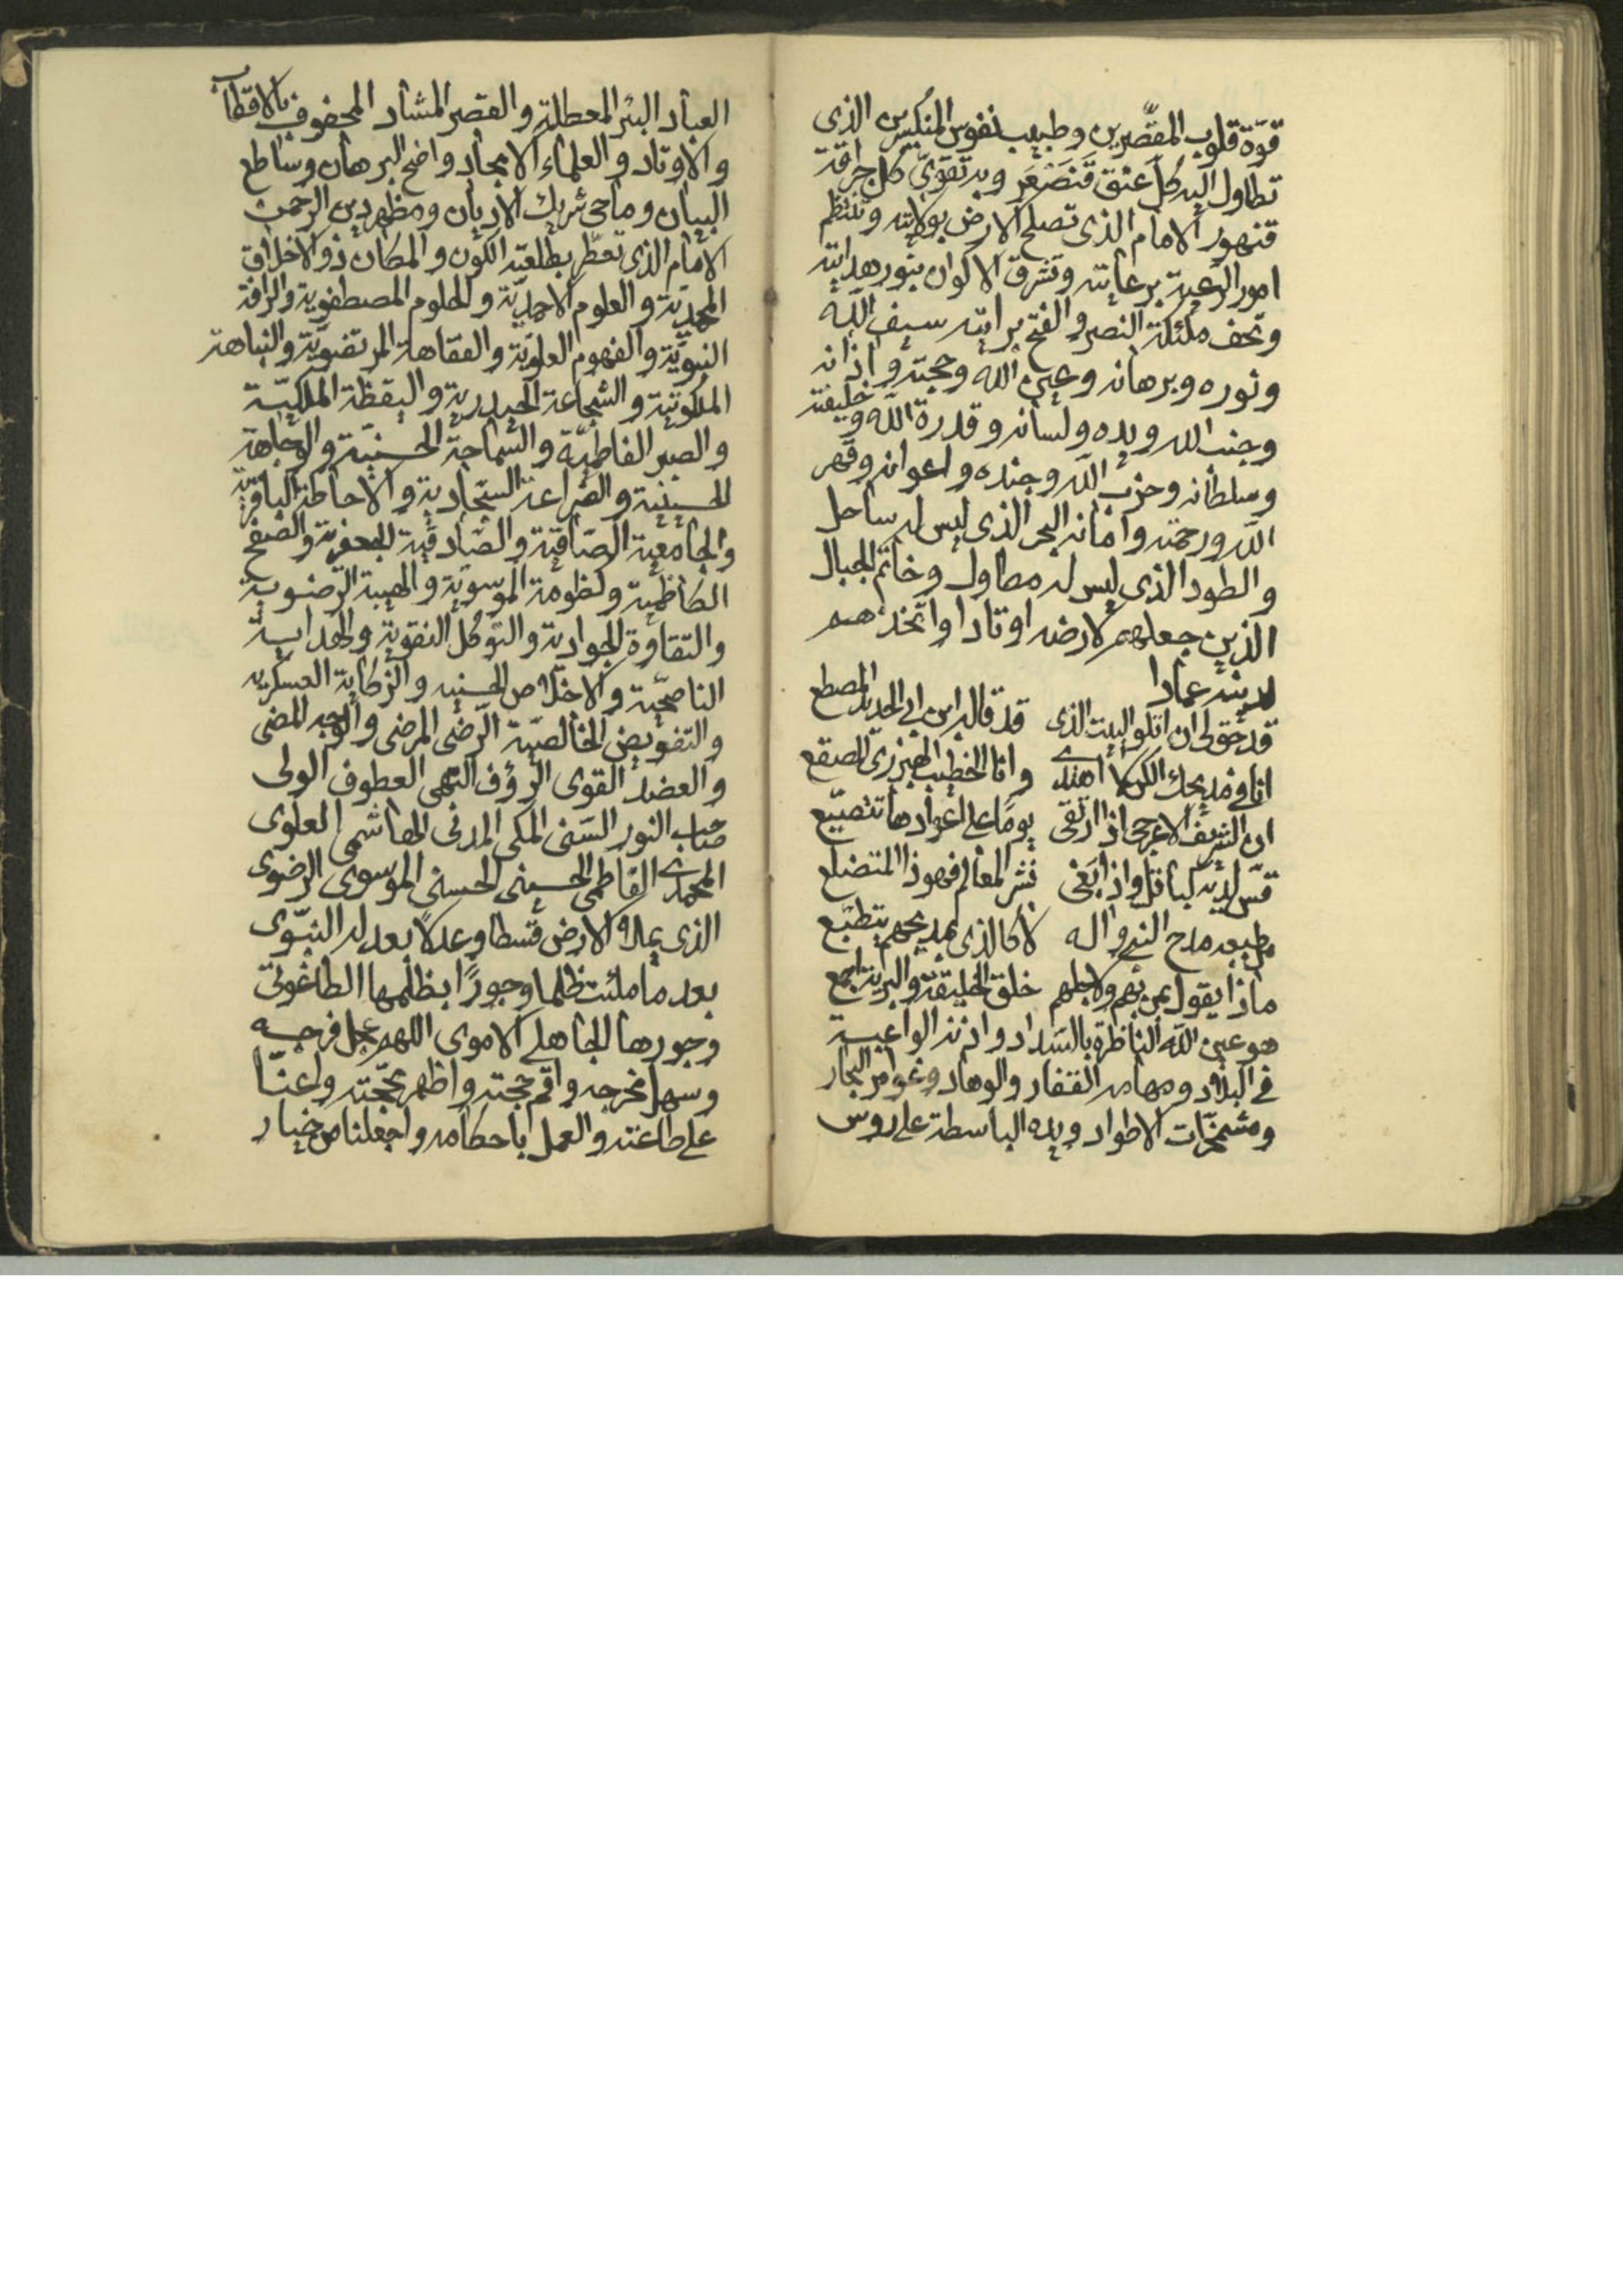 قوّة قلوب المقصّرين وطبيب نفوس المنكسرين الذى
تطاول اليه كلّ عنق فتصعر وبه تقوى كل
الامام الذى تصلح الارض بولايته وتنتظم
امور الرعية برعايته وتشرق الاكوان بنور هدايته
وتحف ملئكة النصر والفتح برايته سيف الله
ونوره وبرهانه وعين الله وحجته واذانه
وجنب الله ويده ولسانه وقدرة الله وخليفته
وسلطانه وحزب الله وجنده واعوانه وقهر
الله ورحمته وامانه البحر الذى ليس له ساحل
والطود الذى ليس له مطاول وخاتم الجبال
الذين جعلهم لارضه اوتادا واتخذهم
لدينه عمادا
قد حق لى ان اتلو البيت الذى قد قاله ابن ابى الحديد المصطع
انا فى مديحك الكن لا اهتدى وانا الخطيب الهبرزى المصقع
ان الشريف الاعرجى اذا ارتقى يوما على اعوادها تتصيع
قس لديه كباقل واذا بغى نشر المعالم فهو ذا المتضلع
بطبعه مدح النبى واله لا كالذى بمديحهم يتطبع
ماذا يقول بمن بهم ولاجلهم خلق الخليقة والبرية اجمع
هو عين الله الناظرة بالسداد واذنه الواعية
فى البلاد ومهامه القفار والوهاد وغوامر البحار
ومشمخرّات الاطواد ويده الباسطة على روس
العباد البئر المعطلة والقصر المشاد المحفوف بالاقطاب
والاوتاد والعلماء الامجاد واضح البرهان وساطع
البيان وماحى شريك الاديان ومظهر دين الرحمن
الامام الذى تعطّر بطلعته الكون والمكان ذو الاخلاق
المحمّديّة والعلوم الاحمديّة والحلوم المصطفوية والرافة
النبويّة والفهوم العلويّة والفقاهة المرتضويّة والنباهة
الملكوتية والشجاعة الحيدرية واليقظة الملكيّة
والصبر الفاطميّة والسّماحة الحسنيّة والوجاهة
الحسينية والضراعة السجّادية والاحاطة الباقرية
والجامعية الصافية والصّادقية الجعفرية والصفح
الكاظمية وكظومة الموسوية والهيبة الرضوية
والتقاوة الجوادية والتوكل النقوية والهداية
الناصحيّة والاخلاص الحسنيه والزكاية العسكريه
والتفويض الخالصيّة الرّضى المرضى والوجه المضى
والعضد القوى الرؤف البهى العطوف الولى
صاحب النور السنى المكى المدنى الهاشمى العلوى
المحمدى الفاطمى الحسينى الحسنى الموسوى الرضوى
الذى يملاء الارض قسطا وعدلاً بعدله النبّوى
بعد ما ملئت ظلما وجورًا بظلمها الطاغوتى
وجورها الجاهلى الاموى اللهم عجل فرجه
وسهل مخرجه واقم حجته واظهر محجّته واعنّا
على طاعته والعمل باحكامه واجعلنا من خيار